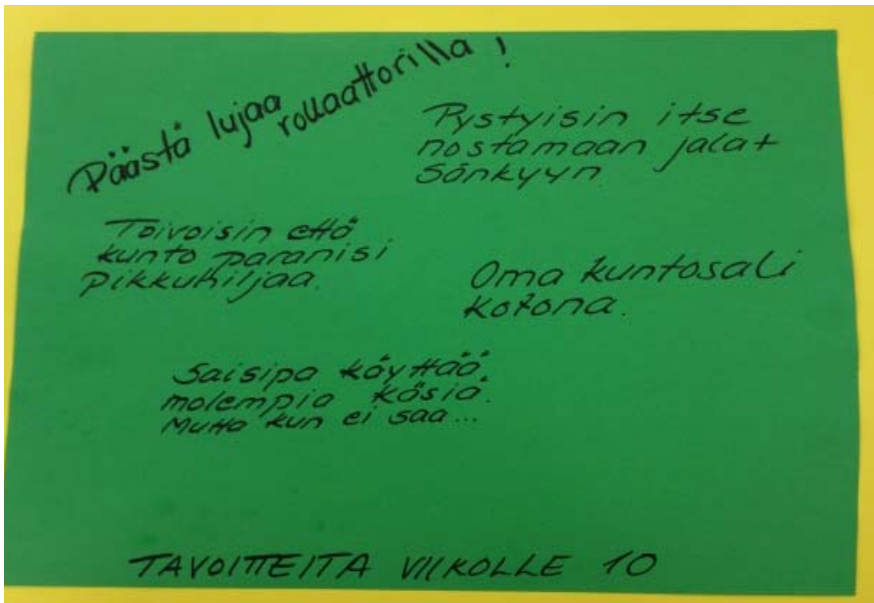 Päästä lujaa
rollaattorilla!
Pystyisin itse
nostamaan jalat
sänkyyn.
Toivoisin että
kunto paranisi
pikkuhiljaa.
Oma kuntosali
kotona.
Saisipa käyttää
molempia käsiä.
Mutta kun ei saa...
TAVOITTEITA VIIKOLLE 10